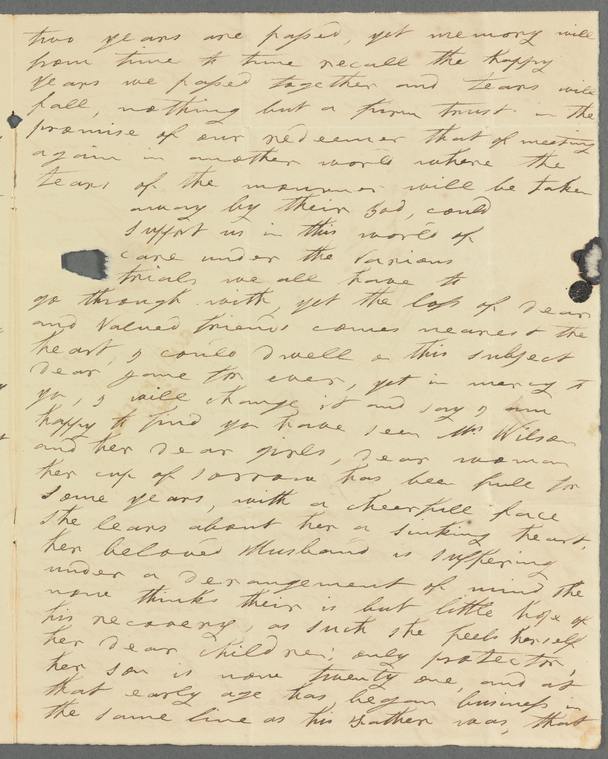 two years are passed, yet memory will
from time to time recall the happy
years we passed together and tears will
fall, nothing but a firm trust in the
promise of our redeemer that of meeting
again in another world where the
tears of the mourner will be taken
away by their God, could
support us in this world of
care under the various
trials we all have to
go through with, yet the loss of dear
and valued friends comes nearest the
heart, I could dwell on this subject
Dear Jame for ever, yet in mercy to
you, I will change it and say I am
happy to find you have seen Mrs Wilson
and her dear girls, dear woman
her cup of sorrow has been full for
some years, with a cheerfull face
she bears about her a sinking heart,
her beloved Husband is suffering
under a derangement of mind the
none thinks their is but little hope of
his recovery, as such she feels herself
her dear children; only protector,
her son is now twenty one, and at
that early age has began business in
the same line as his Father was, that